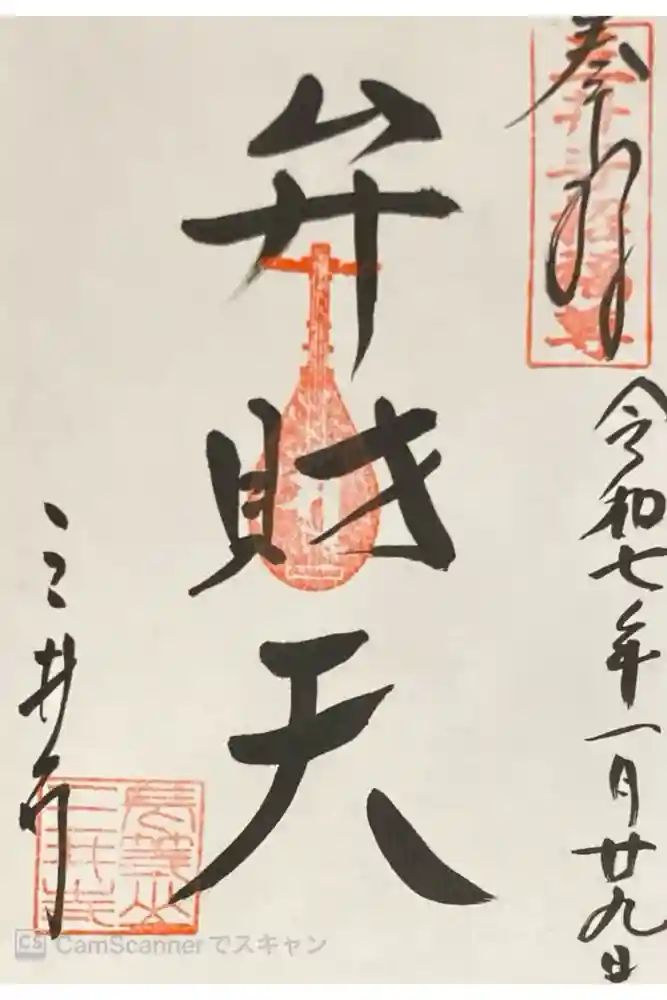 奉拝
令和七年一月廿九日
弁財天
三井寺
長等山
三井寺
CS CamScannerでスキャン